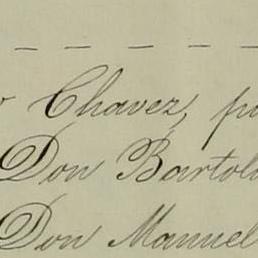 Chavez, pu
Don Bartol
Don Manuel